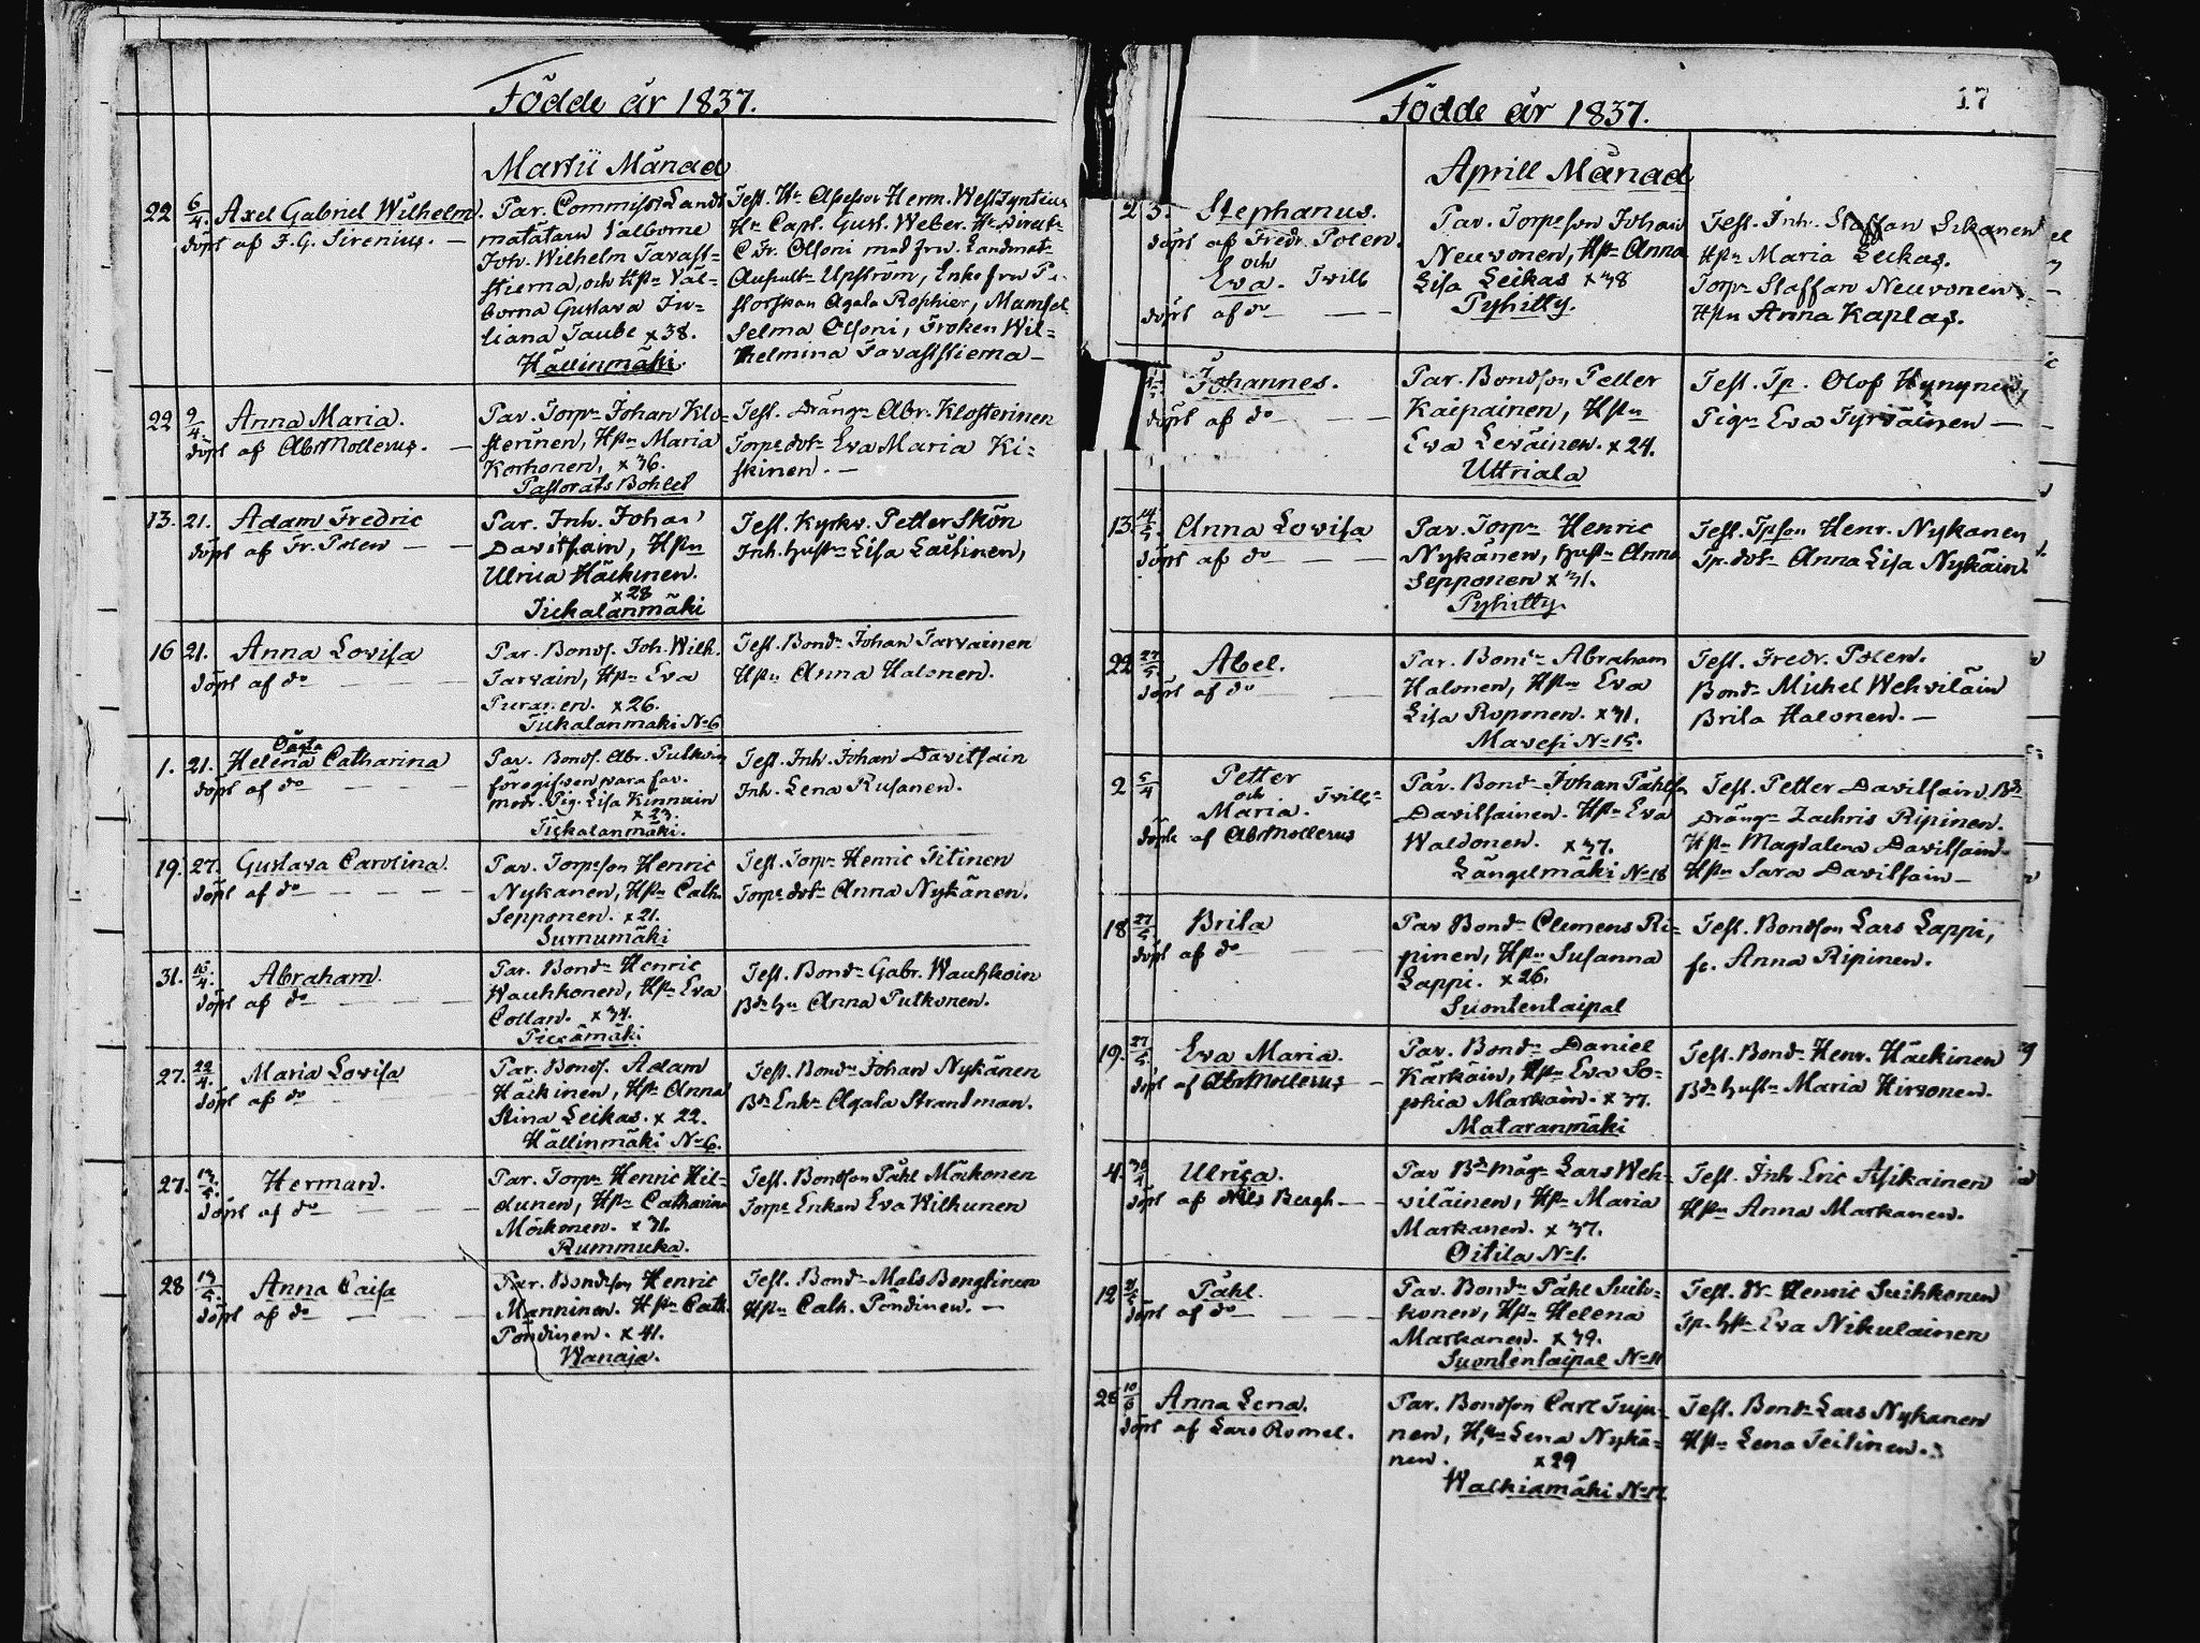 Födde år 1837.
Martii Månad
22 6/4. Axel Gabriel Wilhelm.
döpt af F. G. Sirenius. —
Par. Commiss. Landt
mätaren Välborne
Joh. Wilhelm Tavast=
stierna, och Hstr Väl=
borna Gustava Ju=
liana Taube x 38.
Hällinmäki
Test. Hr Assessor Herm. West Synteius
Hr Capt. Gust. Weber. Hr Direkt
C Fr. Olsoni med fru. Landmät
Auscult. Upström, Enke fru
Agata Rophier, Mamsel
Selma Olsoni, Fröken Wil=
helmina Tavaststierna —
22 9/4 Anna Maria.
döpt af Abr Mollerus. —
Par. Torpr Johan Klo=
sterinen, Hstr Maria
Korhonen, x 36.
Pastorats Bohlet
Test. Drängn Abr. Klosterinen
Torpr dotr Eva Maria Ki=
skinen. —
13. 21. Adam Fredric
döpt af Fr. Polen — —
Par. Inh. Johan
Davitsain, Hstru
Ulrica Häckinen.
x 28
Tickalanmäki
Test. Kyrkv. Petter Skön
Inh. hustr Lisa Laitinen,
16 21. Anna Lovisa
döpt af do — — —
Par. Bonds. Joh. Wilh.
Tarvain, Hstr Eva
Puranen. x 26.
Tickalanmäki No 6
Test. Bondn Johan Tarvainen
Hstru Anna Halonen.
1. 21. Oägta
Helena Catharina
döpt af do — — —
Par. Bonds. Abr. Pulkoin
föregifven vara far.
modr. Pig. Lisa Kinnuin
x 23.
Tickalanmäki.
Test. Inh. Johan Davitsain
Inh. Lena Rusanen.
19. 27. Gustava Carolina.
döpt af do — — —
Par. Torpeson Henric
Nykänen, Hstr Cath.
Sepponen. x 21.
Surnumäki
Test. Torpr Henric Titinen
Torpr dotr Anna Nykänen.
31. 15/4. Abraham.
döpt af do — — —
Par. Bondn Henric
Wauhkonen, Hstr Eva
Collan. x 34.
Piexämäki
Test. Bondn Gabr. Wauhkoin
Bdn hu Anna Putkonen.
27. 22/4. Maria Lovisa
döpt af do — — —
Par. Bonds. Adam
Häckinen, Hstr Anna
Stina Leikas. x 22.
Hällinmäki No 6.
Test. Bondn Johan Nykänen
Bdn Enkn Agata Strandman.
27. 13/5. Herman.
döpt af do — — —
Par. Torpr Henric Hil=
dunen, Hstr Catharina
Möikonen. x 31.
Rummuka.
Test. Bondson Påhl Möikonen
Torpr Enkan Eva Wilhunen
28 13/5. Anna Caisa
döpt af do — — —
Par. Bondson Henric
Manninen. Hstr Cath.
Pöndinen. x 41.
Wanaja.
Test. Bondn Mats Bengtinen
Hstr Cath. Pöndinen. —
Födde år 1837.
17
Aprill Månad
2 3. Stephanus.
döpt af Fredr. Polen.
och
Eva. Twill
döpt af do — —
Par. Torpeson Johan
Neuvonen, Hstr Anna
Lisa Leikas x 38
Pyhitty.
Test. Inh. Staffan
Hstr Maria Leikas.
Torpr Staffan Neuvonen
Hstru Anna Kaplas.
Johannes.
döpt af do — —
Par. Bondson Petter
Kaipainen, Hstru
Eva Leväinen. x 24.
Uttriala
Test. Tp. Olof Hynynen,
Pign Eva Tyrväinen —
13. 14/5. Anna Lovisa
döpt af do — —
Par. Torpr Henric
Nykänen, hustr Anna
Sepponen x 31.
Pyhitty.
Test. Tpson Henr. Nykänen
Tp. dotr Anna Lisa Nykäin.
22 27/5. Abel.
döpt af do —
Par. Bondn Abraham
Halonen, Hstru Eva
Lisa Roponen. x 31.
Mavesi No 15.
Test. Fredr. Polen.
Bondn Michel Wehviläin
Brita Halonen. —
2 5/4 Petter
och
Maria. Twill=
döpte af Abr Mollerus
Par. Bondn Johan Påhls
Davitsainen. Hstr Eva
Waldonen. x 37.
Längelmäki No 18
Test. Petter Davitsain Bdn
Drängn Zachris Ripinen.
Hstr Magdalena Davitsain
Hstru Sara Davitsain —
18 27/5. Brita
döpt af do —
Par Bondn Clemens Ri=
pinen, Hstru Susanna
Lappi. x 26.
Suontentaipal
Test. Bondson Lars Lappi,
fr. Anna Ripinen.
19. 27/5 Eva Maria.
döpt af Abr Mollerus —
Par. Bondn Daniel
Kärkäin, Hstr Eva So=
phia Markäin. x 37.
Mataranmäki
Test. Bondn Henr. Häckinen
Bdn hustr Maria Hirvonen.
4. 30/4 Ulrica.
döpt af Nils Bergh —
Par Bdn mågn Lars Weh=
viläinen, Hstr Maria
Markanen. x 37.
Oitila No 1.
Test. Inh. Eric Asikainen
Hstru Anna Markanen.
12 21/5 Påhl.
döpt af do —
Par. Bondn Påhl Suih=
konen, Hstr Helena
Markanen. x 39.
Suontentaipal No 11
Test. Dr Henric Suihkonen
Tp. hstr Eva Nikulainen
28 10/6 Anna Lena.
döpt af Lars Romel.
Par. Bondson Carl Tuju=
nen, Hstr Lena Nykä=
nen. x 29
Walkiamäki No 17.
Test. Bondn Lars Nykänen
Hstr Lena Teitinen.